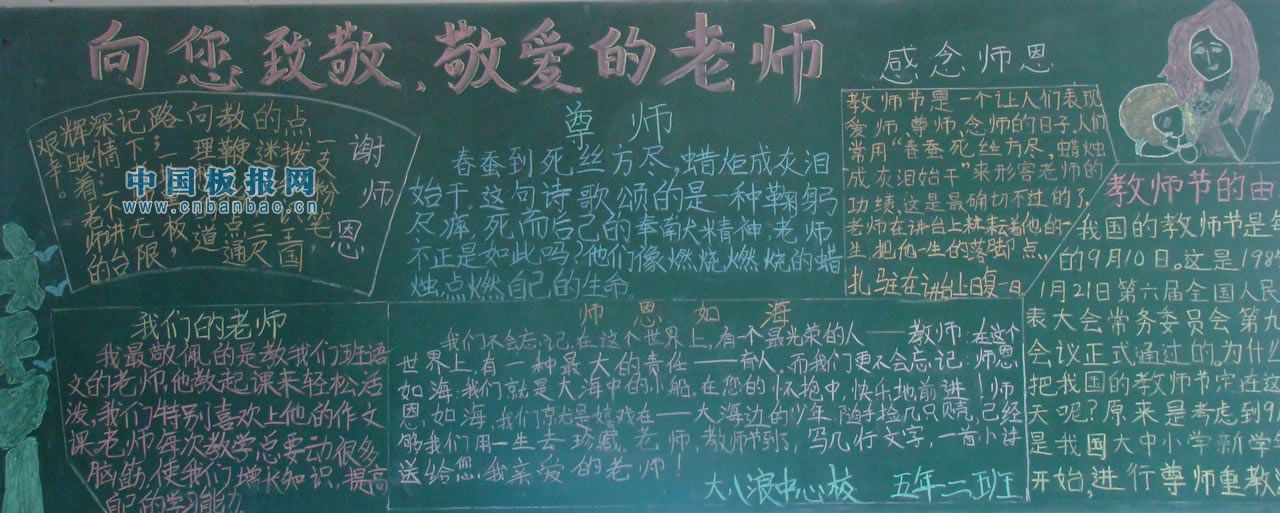 向您致敬、敬爱的老师
谢师恩
一支粉笔,
艰辛。
中国板报网
www.cnbanbao.cn
尊师
春蚕到死丝方尽,蜡炬成灰泪
始干.这句诗歌颂的是一种鞠躬
尽瘁,死而后己的奉献精神.老师
不正是如此吗?他们像燃烧燃烧的蜡
烛点燃自己的生命.
感念师恩
教师节是一个让人们表现
爱师、尊师、念师的日子.人们
常用“春蚕死丝方尽,蜡烛
成灰泪始干”来形容老师的
功绩,这是最确切不过的了.
老师在讲台上耕耘着他的一
生,把他一生的落脚点,
扎马驻在讲台上日复一日
教师节的由
我国的教师节是每
的9月10日。这是198
1月21日第六届全国人民
表大会常务委员会第九
会议正式通过的.为什么
把我国的教师节定在这
天呢?原来是考虑到9
是我国大中小学新学
开始,进行尊师重教
我们的老师
我最敬佩的是教我们班语
文的老师,他教起课来轻松活
泼,我们特别喜欢上他的作文
课.老师每次教学总要动很多
脑筋,使我们增长知识,提高
自己的学习能力.
师恩如海
我们不会忘记在这个世界上,有个最光荣的人——教师:在这个
世界上,有一种最大的责任——育人.而我们更不会忘记:师恩
如海:我们就是大海中的小船.在您的怀抱中,快乐地前进!师
恩,如海,我们就是嬉戏在——大海边的少年,随手捡几只贝壳,已经
够我们用一生去珍藏.老师,教师节到了,写几行文字,一首小诗
送给您,我亲爱的老师!
大八浪中心校 五年二班